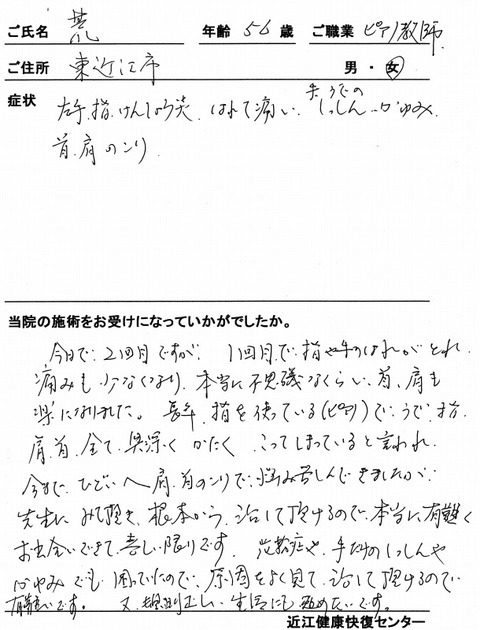 ご氏名 荒 年齢 56 歳 ご職業 ピアノ教師
ご住所 東近江市 男・女
症状 左手.指.けんしょう炎.はれて痛い.手.うでのしっしん..かゆみ.
首.肩のこり.
当院の施術をお受けになっていかがでしたか。
今日で、2回目ですが、1回目で、指や手のはれがとれ、
痛みも少なくなり、本当に不思議なくらい、首、肩も
楽になりました。長年、指を使っている(ピアノ)で、うで、指、
肩、首、全て、奥深く かたく こってしまっていると言われ、
今まで、ひどい 肩、首のこりで、悩み苦しんできましたが、
先生に みて頂き、根本から、治して頂けるので、本当に有難く
お出会いできて、喜しい限りです。 手だけのしっしんや
かゆみでも 困っていたので、原因をよく見て、治して頂けるので
有難いです。 又、規則正しい生活にも 努めたいです。
近江健康快復センター